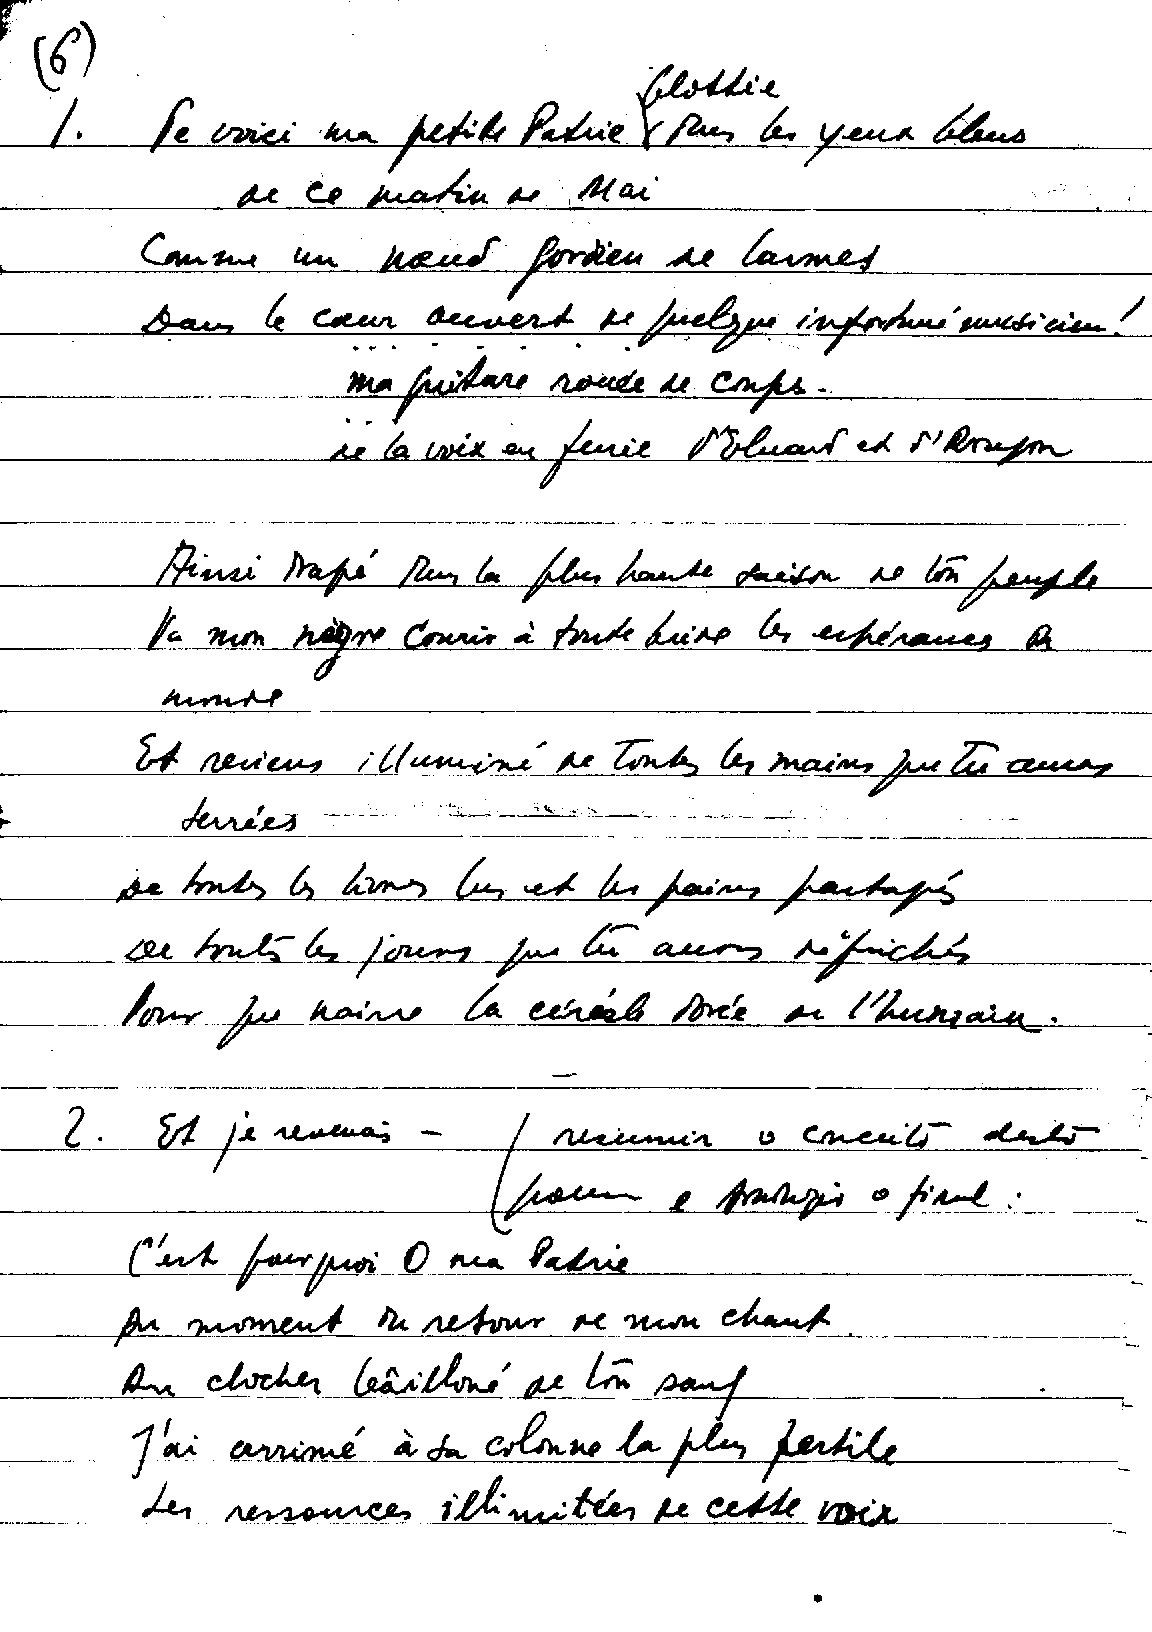 (6)
blottie
1. Te voici ma petite Patrie dans les yeux bleus
de ce matin de Mai
Comme un nœud gordien de larmes
Dans le cœur ouvert de quelque infortuné musicien!
ma guitare rouée de coups.
de la voix en furie d'Eluard et d'Aragon
Ainsi drapé dans la plus haute saison de ton peuple
Va mon nègre courir à toute bride les espérances du
monde
Et reviens illuminé de toutes les mains que tu auras
serrées
De toutes les livres lus et les pains partagés
De touts les jours que tu auras défrichés
Pour que naisse la céréale dorée de l'humain.
2. Et je revenais – ( resumir o conceito deste
poema e transcrever o final :
C'est pourquoi O ma Patrie
Au moment du retour de mon chant
Au clocher bâilloné de ton sang
J'ai arrimé à sa colonne la plus fertile
Les ressources illimitées de cette voix